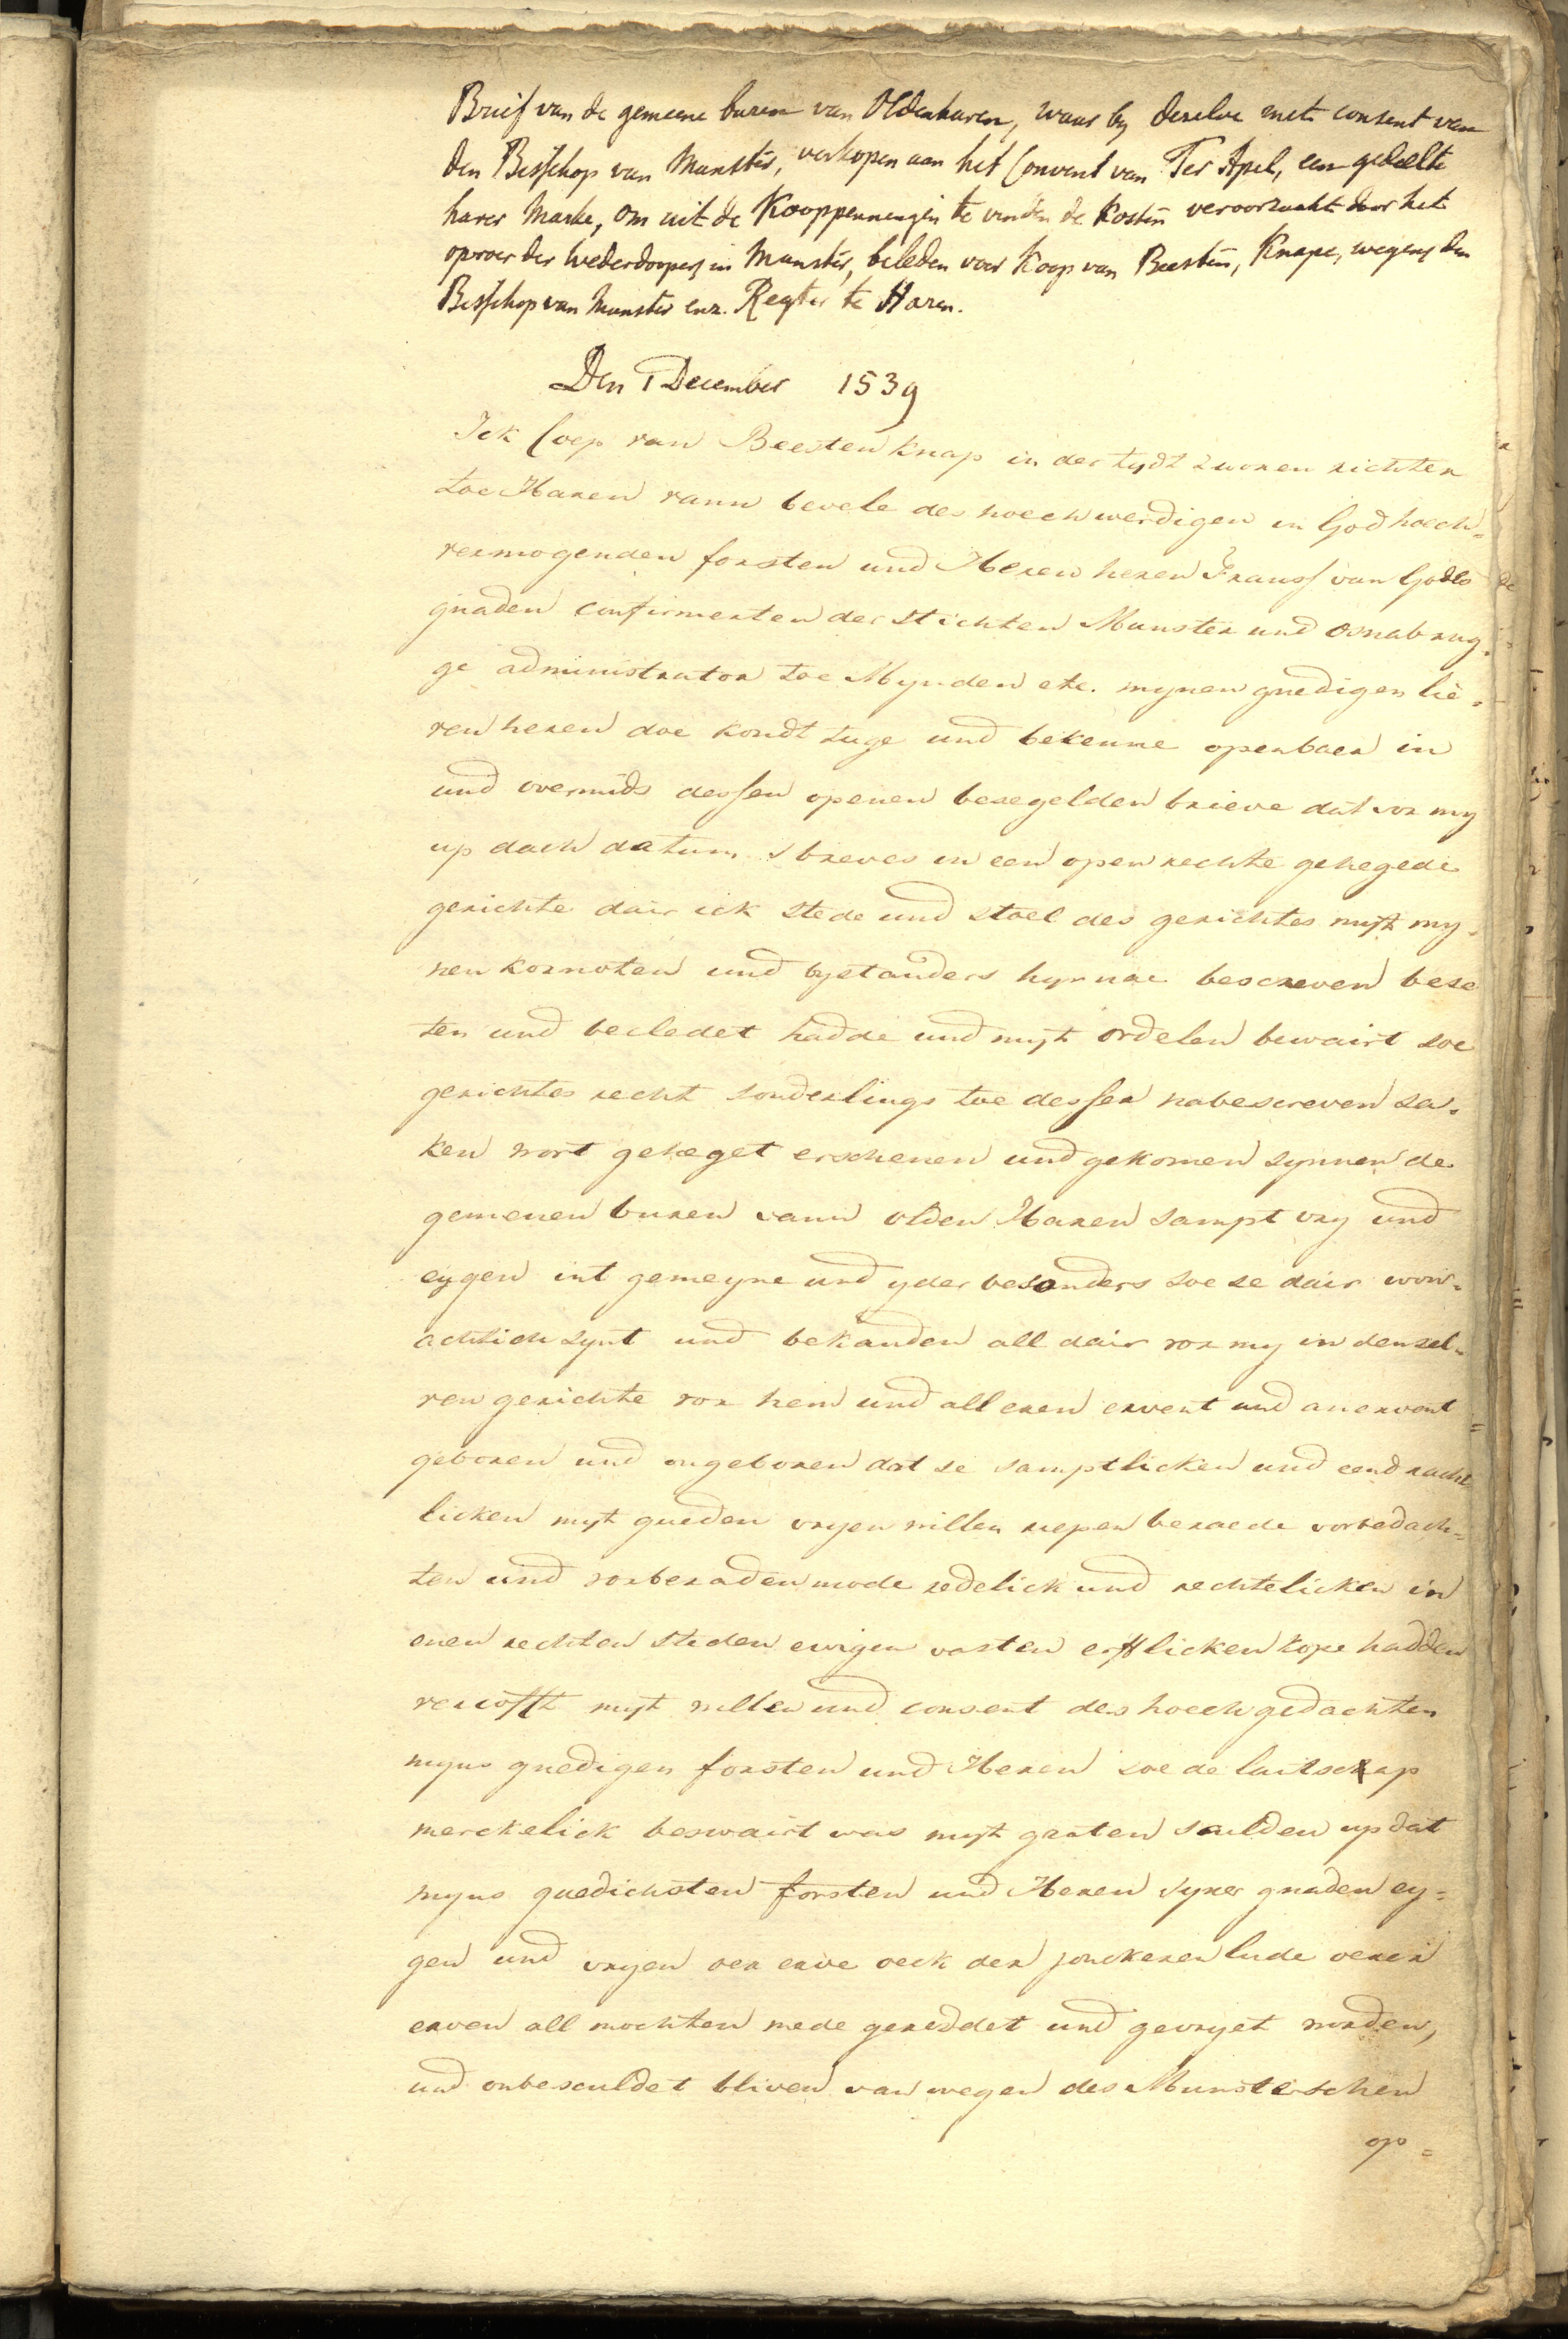 Brief van de gemeene buren van Oldenharen, waar by deselve met consent van
den Bisschop van Munster, verkopen aan het Convent van Ter Apel, een gedeelte
harer Marke, om uit de Kooppenningen te vinden de kosten veroorzaakt door het
oproer der wederdoopers in Munster, beleden voor Koop van Beesten, Knape, wegens den
Bisschop van Munster enz. Regter te Haren.
Den 1 December 1539
Ick Coep van Beesten knap in der tydt zworen richter
toe Haren vann bevele des hoechwerdigen in God hoech=
vermogenden forsten und Heren heren Franss van Godes
gnaden confirmerten der stichten Munster und Osnabrug=
ge administrator toe Mynden etc. mynen gnedigen lie=
ven heren doe kondt tuge und bekenne openbaer in
und overmids dessen openen besegelden brieve dat vor my
up dach datum sbreves in een open rechte gehegede
gerichte dair ick stede und stoel des gerichtes myt my=
nen kornoten und bystanders hyrnae bescreven bese
ten und becledet hadde und myt ordelen bewairt soe
gerichtes recht sonderlings toe desser nabescreven sa=
ken wort geheget erschenen und gekomen synnen de
gemenen buren vann olden Haren sampt vry und
eygen int gemeyne und yder besonders soe se dair won=
achtich synt und bekanden all dair vor my in densel=
ven gerichte vor hem und all eren ervent und anervent
geboren und ongeboren dat se samptlicken und eendracht
licken myt gueden vryen willen riepen beraede vorbedach=
ten und vorberaden mode redelick und rechtelicken in
enen rechten steden ewigen vasten erfflicken kope hadden
vercofft myt willen und consent des hoechgedachten
myns gnedigen forsten und Heren soe de lantsckap
merckelick beswairt was myt groten sculden up dat
myns gnedichsten forsten und Heren syner gnaden ey=
gen und vryen oer erve oeck der jonckeren lude oerer
erven all mochten mede gereddet und gevryet worden,
und onbesculdet bliven van wegen des Munsterschen
op=